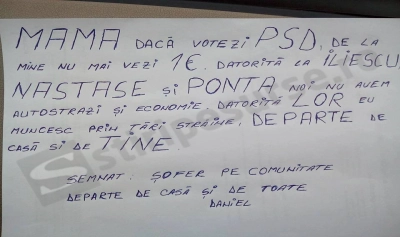 MAMA DACĂ VOTEZI PSD, DE LA
MINE NU MAI VEZI 1€. DATORITĂ LA ILIESCU
NASTASE ȘI PONTA NOI NU AVEM
AUTOSTRAZI ȘI ECONOMIE. DATORITĂ LOR EU
MUNCESC PRIN ȚĂRI STRAINE, DEPARTE DE
CASĂ SI DE TINE.
SEMNAT: ȘOFER PE COMUNITATE
DEPARTE DE CASĂ ȘI DE TOATE
DANIEL